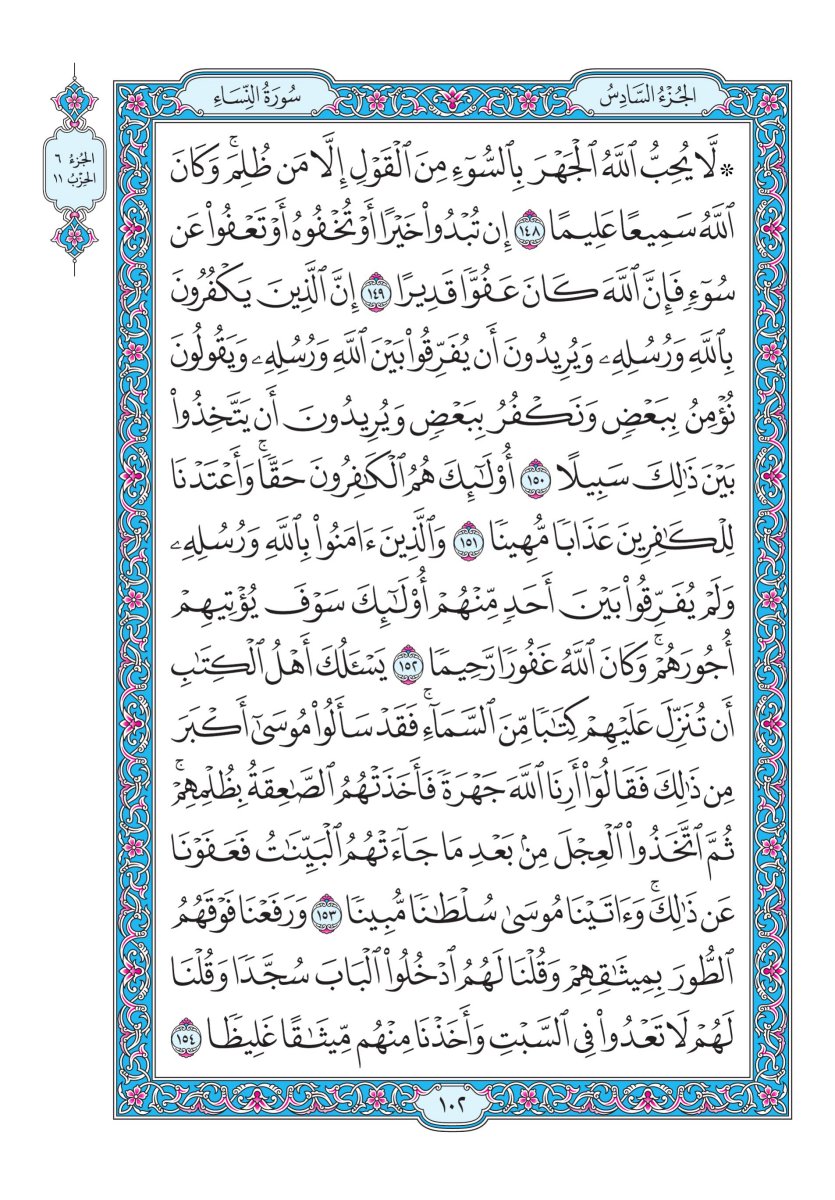 سُورَةُ النِّسَاءِ
الجُزْءُ السَّادِسُ
الجُزْءُ ٦
الحِزْبُ ١١
۞ لَّا يُحِبُّ ٱللَّهُ ٱلْجَهْرَ بِٱلسُّوٓءِ مِنَ ٱلْقَوْلِ إِلَّا مَن ظُلِمَۚ وَكَانَ
ٱللَّهُ سَمِيعًا عَلِيمًا ١٤٨ إِن تُبْدُوا۟ خَيْرًا أَوْ تُخْفُوهُ أَوْ تَعْفُوا۟ عَن
سُوٓءٍ فَإِنَّ ٱللَّهَ كَانَ عَفُوًّا قَدِيرًا ١٤٩ إِنَّ ٱلَّذِينَ يَكْفُرُونَ
بِٱللَّهِ وَرُسُلِهِۦ وَيُرِيدُونَ أَن يُفَرِّقُوا۟ بَيْنَ ٱللَّهِ وَرُسُلِهِۦ وَيَقُولُونَ
نُؤْمِنُ بِبَعْضٍ وَنَكْفُرُ بِبَعْضٍ وَيُرِيدُونَ أَن يَتَّخِذُوا۟
بَيْنَ ذَٰلِكَ سَبِيلًا ١٥٠ أُو۟لَٰٓئِكَ هُمُ ٱلْكَٰفِرُونَ حَقًّاۚ وَأَعْتَدْنَا
لِلْكَٰفِرِينَ عَذَابًا مُّهِينًا ١٥١ وَٱلَّذِينَ ءَامَنُوا۟ بِٱللَّهِ وَرُسُلِهِۦ
وَلَمْ يُفَرِّقُوا۟ بَيْنَ أَحَدٍ مِّنْهُمْ أُو۟لَٰٓئِكَ سَوْفَ يُؤْتِيهِمْ
أُجُورَهُمْۚ وَكَانَ ٱللَّهُ غَفُورًا رَّحِيمًا ١٥٢ يَسْـَٔلُكَ أَهْلُ ٱلْكِتَٰبِ
أَن تُنَزِّلَ عَلَيْهِمْ كِتَٰبًا مِّنَ ٱلسَّمَآءِۚ فَقَدْ سَأَلُوا۟ مُوسَىٰٓ أَكْبَرَ
مِن ذَٰلِكَ فَقَالُوٓا۟ أَرِنَا ٱللَّهَ جَهْرَةً فَأَخَذَتْهُمُ ٱلصَّٰعِقَةُ بِظُلْمِهِمْۚ
ثُمَّ ٱتَّخَذُوا۟ ٱلْعِجْلَ مِنۢ بَعْدِ مَا جَآءَتْهُمُ ٱلْبَيِّنَٰتُ فَعَفَوْنَا
عَن ذَٰلِكَۚ وَءَاتَيْنَا مُوسَىٰ سُلْطَٰنًا مُّبِينًا ١٥٣ وَرَفَعْنَا فَوْقَهُمُ
ٱلطُّورَ بِمِيثَٰقِهِمْ وَقُلْنَا لَهُمُ ٱدْخُلُوا۟ ٱلْبَابَ سُجَّدًا وَقُلْنَا
لَهُمْ لَا تَعْدُوا۟ فِى ٱلسَّبْتِ وَأَخَذْنَا مِنْهُم مِّيثَٰقًا غَلِيظًا ١٥٤
١٠٢